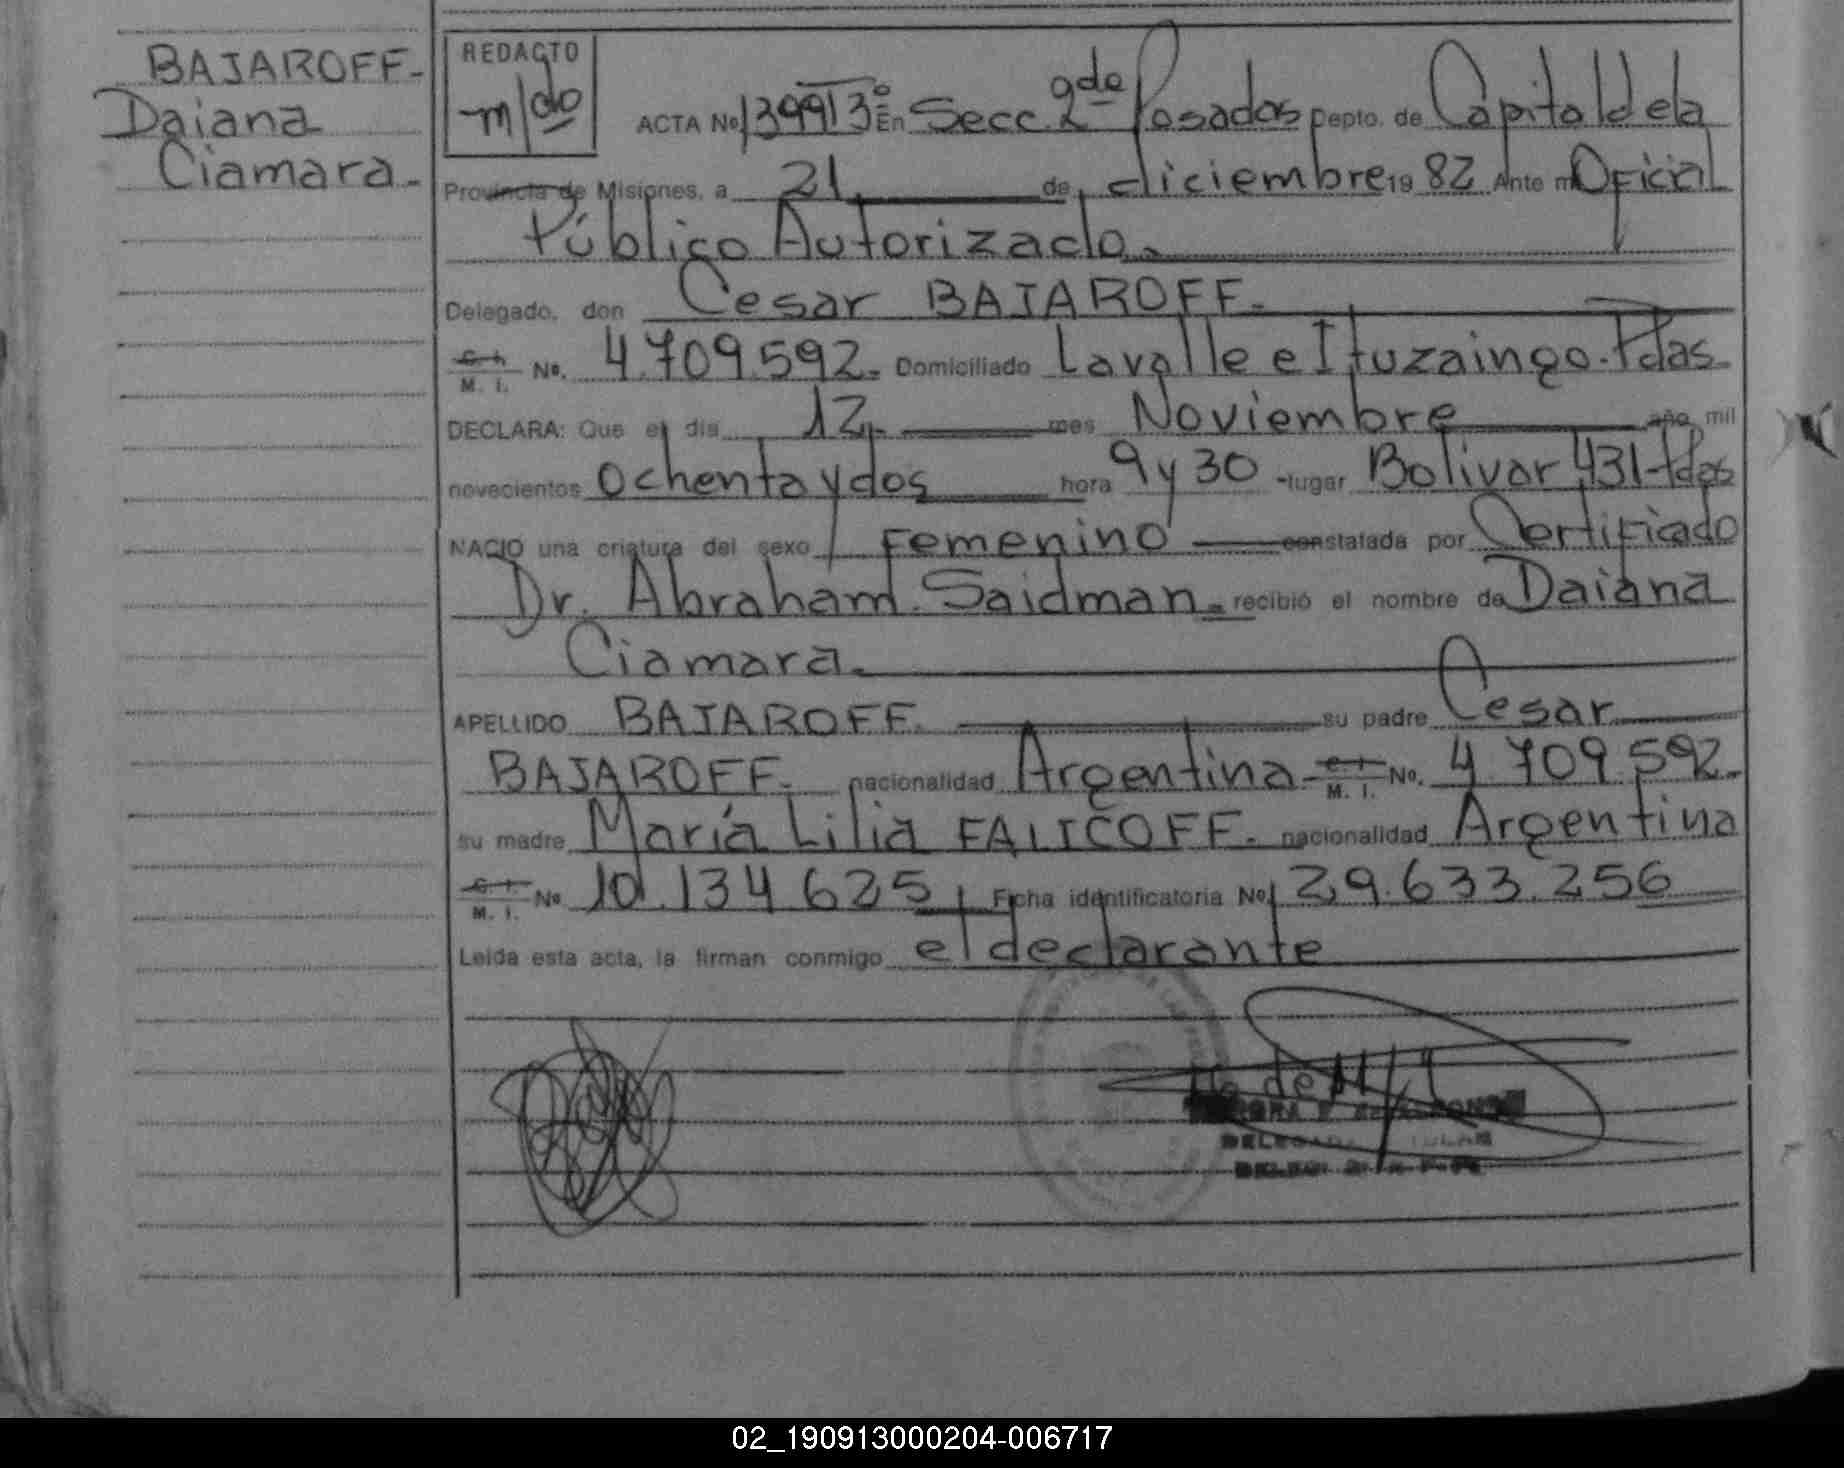 BAJAROFF-
Daiana
Ciamara.-
REDACTO
m/do
ACTA No 3993° En Secc. 2da Posadas Depto. de Capital de la
Provincia de Misiones, a 21 de diciembre 1982 Ante mi Oficial
Público Autorizado.
Delegado, don Cesar BAJAROFF.-
C. I. M. I. No. 4.709.592. Domiciliado Lavalle e Ituzaingo. Pdas.
DECLARA: Que el día 12 mes Noviembre año mil
novecientos ochenta y dos hora 9 y 30 -lugar Bolivar 431-Pdas
NACIO una criatura del sexo Femenino constatada por Certificado
Dr. Abraham Saidman.- recibió el nombre de Daiana
Ciamara.
APELLIDO BAJAROFF. su padre Cesar
BAJAROFF. nacionalidad Argentina- C. I. M. I. No. 4.709.592.
su madre María Lilia FALICOFF. nacionalidad Argentina
C. I. M. I. No 10.134.625 Ficha identificatoria No 29.633.256
Leída esta acta, la firman conmigo el declarante
02_190913000204-006717